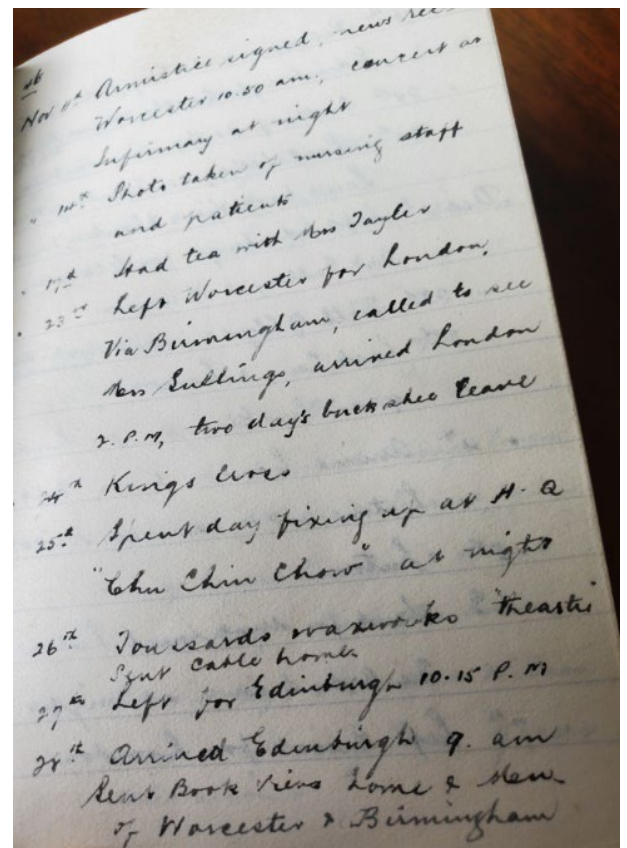 Nov 11th Armistice signed, news rec
Worcester 10.50 am, concert at
Infirmary at night
" 14th Photo taken of nursing staff
and patients
" 17th Had tea with Mrs Tayler
" 23rd Left Worcester for London,
Via Birmingham, called to see
Mrs Gullings, arrived London
2. P.M, two day's buckshee leave
" 24th Kings Cross
25th Spent day fixing up at H. Q
"Chu Chin Chow" at night
26th Toussards waxworks theastr
Sent cable home
27th Left for Edinburgh 10.15 P.M
28th Arrived Edinburgh 9. am
Sent Book Views home &
of Worcester & Birmingham